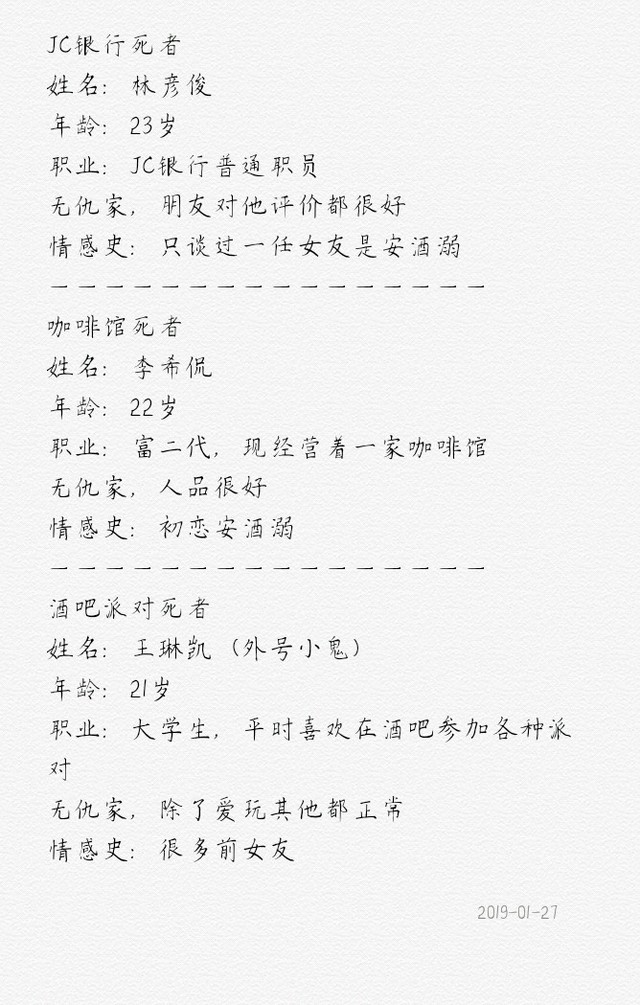 JC银行死者
姓名：林彦俊
年龄：23岁
职业：JC银行普通职员
无仇家，朋友对他评价都很好
情感史：只谈过一任女友是安酒溺
————————————————
咖啡馆死者
姓名：李希侃
年龄：22岁
职业：富二代，现经营着一家咖啡馆
无仇家，人品很好
情感史：初恋安酒溺
————————————————
酒吧派对死者
姓名：王琳凯（外号小鬼）
年龄：21岁
职业：大学生，平时喜欢在酒吧参加各种派
对
无仇家，除了爱玩其他都正常
情感史：很多前女友
2019-01-27